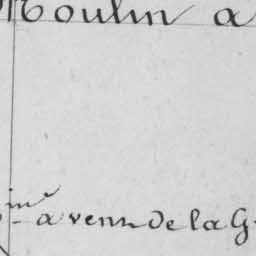 Moulin a
in^e a venn de la G